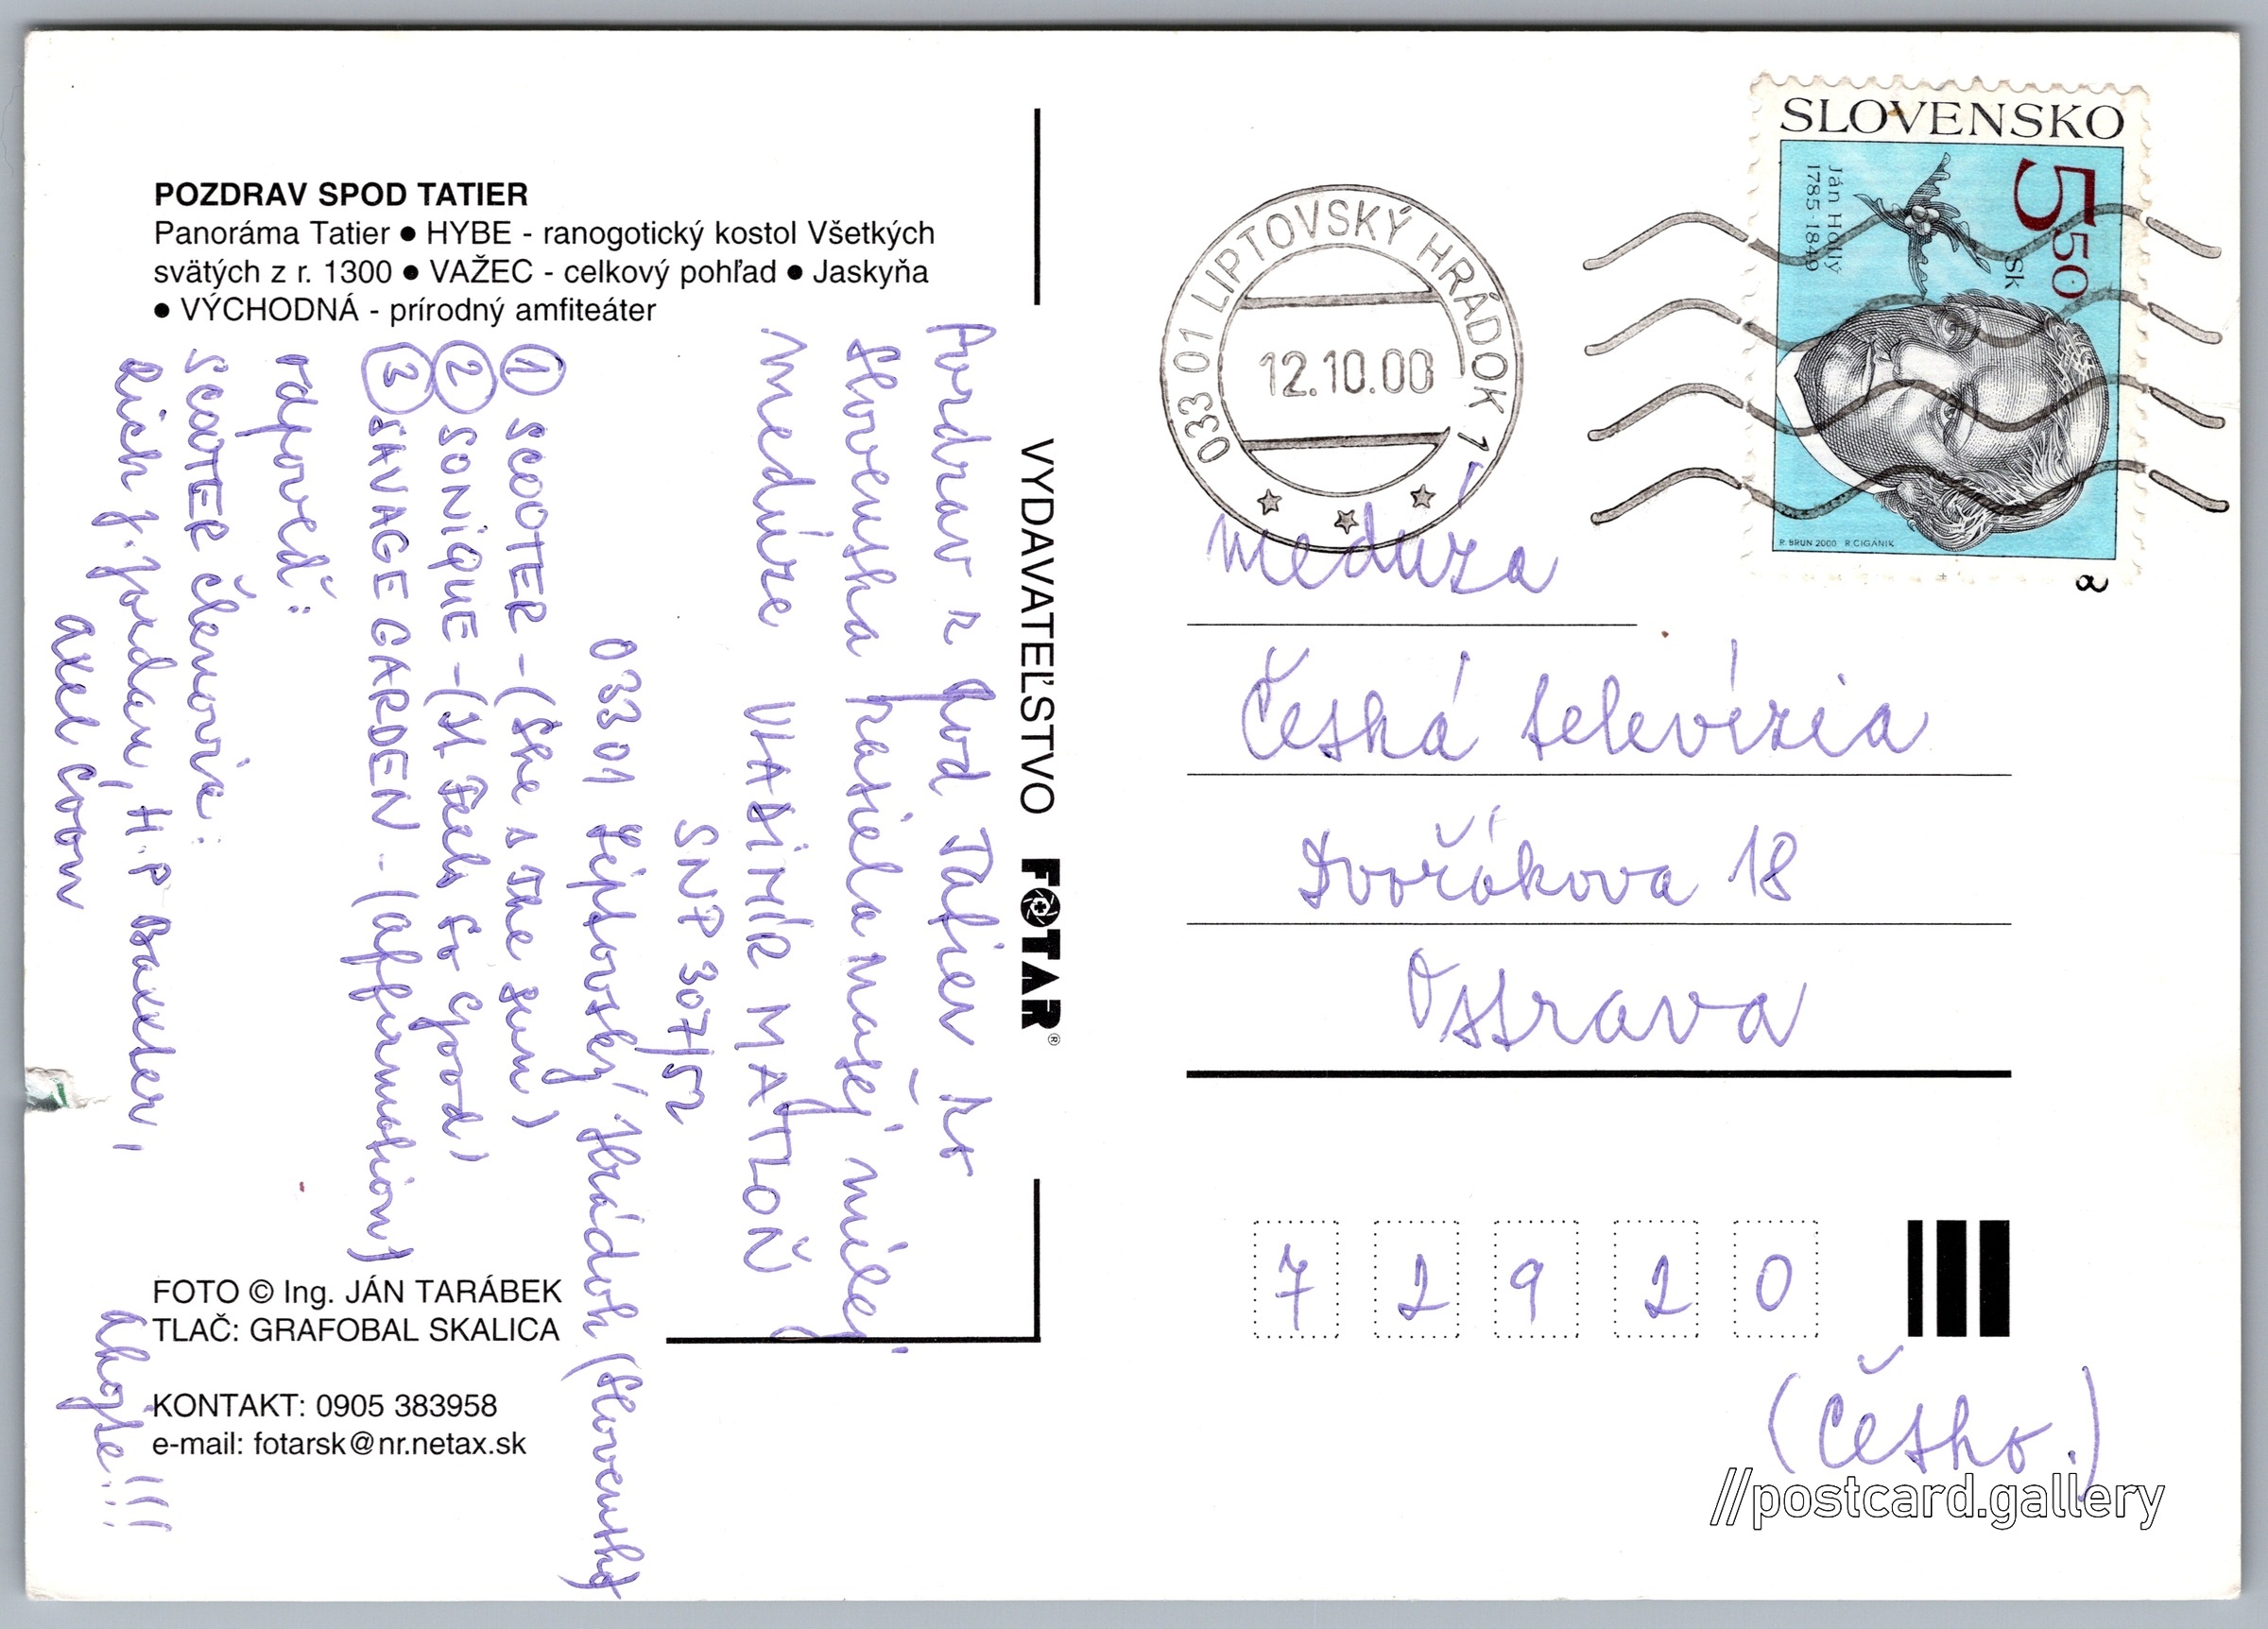 POZDRAV SPOD TATIER
Panoráma Tatier ● HYBE - ranogotický kostol Všetkých
svätých z r. 1300 ● VAŽEC - celkový pohľad ● Jaskyňa
● VÝCHODNÁ - prírodný amfiteáter
Pozdrav z pod Tatier zo
Slovenska posiela našej milej
medúze VLADIMÍR MATLOŇ
SNP 307/52
033 01 Liptovský Hrádok (Slovensko)
① SCOOTER - (She s The Sun)
② SONiQUE - (It Feels So Good)
③ SAVAGE GARDEN - (affirmation)
odpoveď:
SCOOTER členovia:
Rick J. Jordan, H.P Baxxter,
axel coon
ahojte!!!
FOTO © Ing. JÁN TARÁBEK
TLAČ: GRAFOBAL SKALICA
KONTAKT: 0905 383958
e-mail: fotarsk@nr.netax.sk
VYDAVATEĽSTVO FOTAR®
033 01 LIPTOVSKÝ HRÁDOK 1
12.10.00
SLOVENSKO
5 50 Sk
Ján Hollý
1785-1849
R. BRUN 2000 R. CIGÁNIK
a
medúza
Česká televízia
Dvořákova 18
Ostrava
7 2 9 2 0
(Česko.)
//postcard.gallery